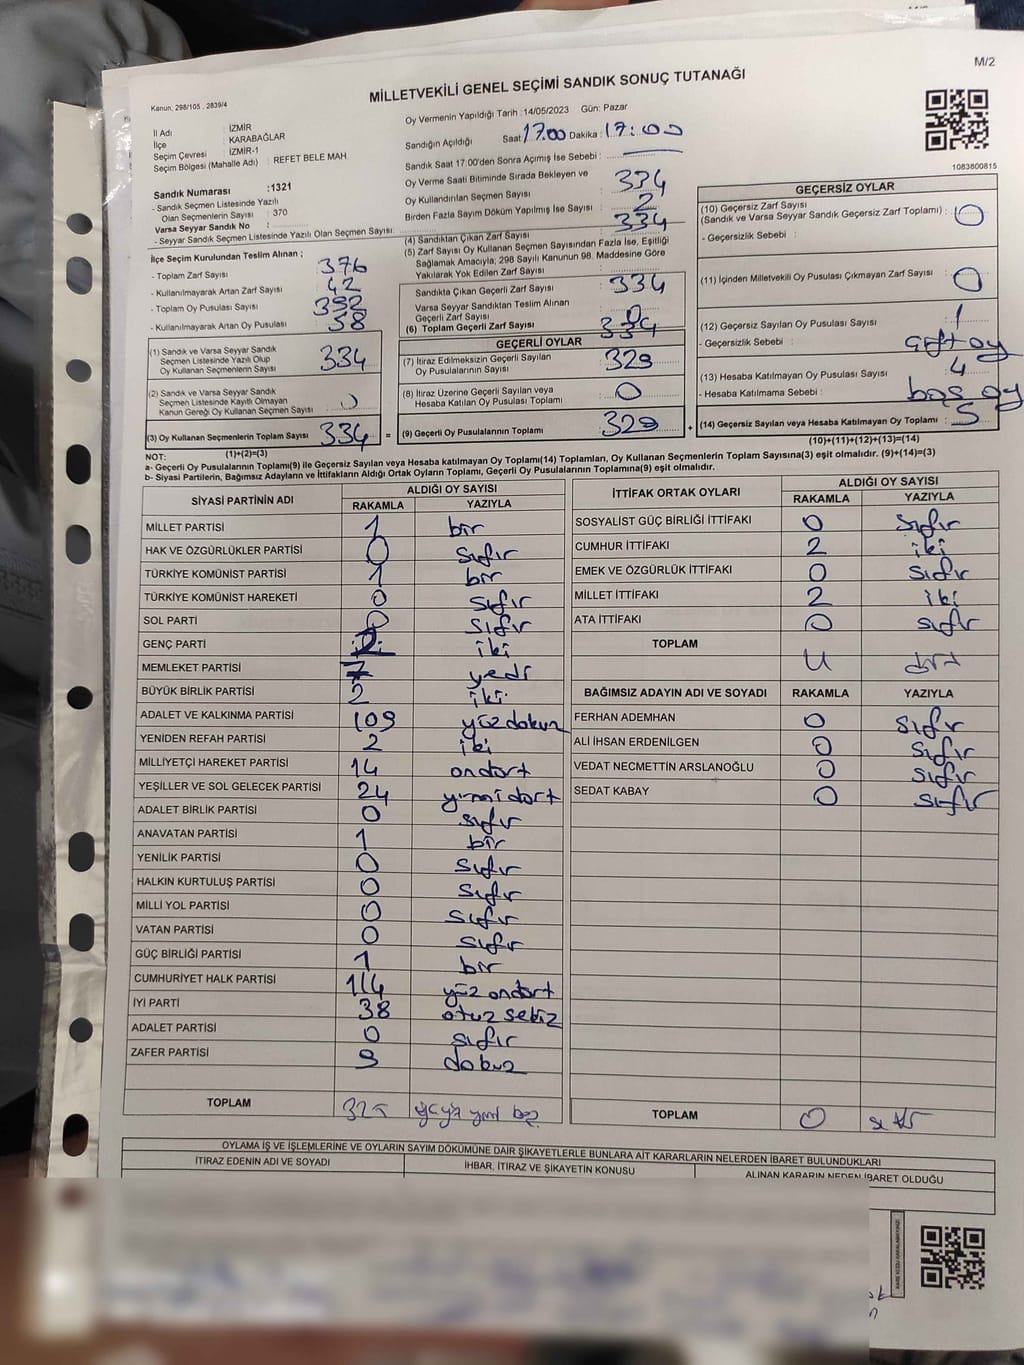 M/2
MİLLETVEKİLİ GENEL SEÇİMİ SANDIK SONUÇ TUTANAĞI
Kanun, 298/105 , 2839/4
İl Adı : İZMİR
İlçe : KARABAĞLAR
Seçim Çevresi : İZMİR-1
Seçim Bölgesi (Mahalle Adı) : REFET BELE MAH.
Sandık Numarası :1321
- Sandık Seçmen Listesinde Yazılı
Olan Seçmenlerin Sayısı : 370
Varsa Seyyar Sandık No :
- Seyyar Sandık Seçmen Listesinde Yazılı Olan Seçmen Sayısı:
Oy Vermenin Yapıldığı Tarih :14/05/2023 Gün: Pazar
Sandığın Açıldığı Saat 17.00 Dakika : 17:00
Sandık Saat 17:00'den Sonra Açımış İse Sebebi :
Oy Verme Saati Bitiminde Sırada Bekleyen ve
Oy Kullandırılan Seçmen Sayısı : 334
Birden Fazla Sayım Döküm Yapılmış İse Sayısı : 2
1083800815
İlçe Seçim Kurulundan Teslim Alınan ;
- Toplam Zarf Sayısı : 376
- Kullanılmayarak Artan Zarf Sayısı : 42
- Toplam Oy Pusulası Sayısı : 392
- Kullanılmayarak Artan Oy Pusulası : 58
(1) Sandık ve Varsa Seyyar Sandık
Seçmen Listesinde Yazılı Olup
Oy Kullanan Seçmenlerin Sayısı : 334
(2) Sandık ve Varsa Seyyar Sandık
Seçmen Listesinde Kayıtlı Olmayan
Kanun Gereği Oy Kullanan Seçmen Sayısı :
(3) Oy Kullanan Seçmenlerin Toplam Sayısı 334 =
(4) Sandıktan Çıkan Zarf Sayısı : 334
(5) Zarf Sayısı Oy Kullanan Seçmen Sayısından Fazla İse, Eşitliği
Sağlamak Amacıyla; 298 Sayılı Kanunun 98. Maddesine Göre
Yakılarak Yok Edilen Zarf Sayısı :
Sandıkta Çıkan Geçerli Zarf Sayısı : 334
Varsa Seyyar Sandıktan Teslim Alınan
Geçerli Zarf Sayısı : 0
(6) Toplam Geçerli Zarf Sayısı : 334
GEÇERLİ OYLAR
(7) İtiraz Edilmeksizin Geçerli Sayılan
Oy Pusulalarının Sayısı : 329
(8) İtiraz Üzerine Geçerli Sayılan veya
Hesaba Katılan Oy Pusulası Toplamı : 0
(9) Geçerli Oy Pusulalarının Toplamı : 329 +
GEÇERSİZ OYLAR
(10) Geçersiz Zarf Sayısı
(Sandık ve Varsa Seyyar Sandık Geçersiz Zarf Toplamı) : 0
- Geçersizlik Sebebi :
(11) İçinden Milletvekili Oy Pusulası Çıkmayan Zarf Sayısı : 0
(12) Geçersiz Sayılan Oy Pusulası Sayısı : 1
- Geçersizlik Sebebi : çift oy
(13) Hesaba Katılmayan Oy Pusulası Sayısı : 4
- Hesaba Katılmama Sebebi : boş oy
(14) Geçersiz Sayılan veya Hesaba Katılmayan Oy Toplamı : 5
(10)+(11)+(12)+(13)=(14)
NOT: (1)+(2)=(3)
a- Geçerli Oy Pusulalarının Toplamı(9) ile Geçersiz Sayılan veya Hesaba katılmayan Oy Toplamı(14) Toplamları, Oy Kullanan Seçmenlerin Toplam Sayısına(3) eşit olmalıdır. (9)+(14)=(3)
b- Siyasi Partilerin, Bağımsız Adayların ve İttifakların Aldığı Ortak Oyların Toplamı, Geçerli Oy Pusulalarının Toplamına(9) eşit olmalıdır.
SİYASİ PARTİNİN ADI ALDIĞI OY SAYISI
RAKAMLA YAZIYLA
MİLLET PARTİSİ 1 bir
HAK VE ÖZGÜRLÜKLER PARTİSİ 0 sıfır
TÜRKİYE KOMÜNİST PARTİSİ 1 bir
TÜRKİYE KOMÜNİST HAREKETİ 0 sıfır
SOL PARTİ 0 sıfır
GENÇ PARTİ 2 iki
MEMLEKET PARTİSİ 7 yedi
BÜYÜK BİRLİK PARTİSİ 2 iki
ADALET VE KALKINMA PARTİSİ 109 yüz dokuz
YENİDEN REFAH PARTİSİ 2 iki
MİLLİYETÇİ HAREKET PARTİSİ 14 ondört
YEŞİLLER VE SOL GELECEK PARTİSİ 24 yirmidört
ADALET BİRLİK PARTİSİ 0 sıfır
ANAVATAN PARTİSİ 1 bir
YENİLİK PARTİSİ 0 sıfır
HALKIN KURTULUŞ PARTİSİ 0 sıfır
MİLLİ YOL PARTİSİ 0 sıfır
VATAN PARTİSİ 0 sıfır
GÜÇ BİRLİĞİ PARTİSİ 1 bir
CUMHURİYET HALK PARTİSİ 114 yüz ondört
İYİ PARTİ 38 otuz sekiz
ADALET PARTİSİ 0 sıfır
ZAFER PARTİSİ 9 dokuz
TOPLAM 325
İTTİFAK ORTAK OYLARI ALDIĞI OY SAYISI
RAKAMLA YAZIYLA
SOSYALİST GÜÇ BİRLİĞİ İTTİFAKI 0 sıfır
CUMHUR İTTİFAKI 2 iki
EMEK VE ÖZGÜRLÜK İTTİFAKI 0 sıfır
MİLLET İTTİFAKI 2 iki
ATA İTTİFAKI 0 sıfır
TOPLAM 4 dört
BAĞIMSIZ ADAYIN ADI VE SOYADI RAKAMLA YAZIYLA
FERHAN ADEMHAN 0 sıfır
ALİ İHSAN ERDENİLGEN 0 sıfır
VEDAT NECMETTİN ARSLANOĞLU 0 sıfır
SEDAT KABAY 0 sıfır
TOPLAM 0 sıfır
OYLAMA İŞ VE İŞLEMLERİNE VE OYLARIN SAYIM DÖKÜMÜNE DAİR ŞİKAYETLERLE BUNLARA AİT KARARLARIN NELERDEN İBARET BULUNDUKLARI
İTİRAZ EDENİN ADI VE SOYADI İHBAR, İTİRAZ VE ŞİKAYETİN KONUSU ALINAN KARARIN NEDEN İBARET OLDUĞU